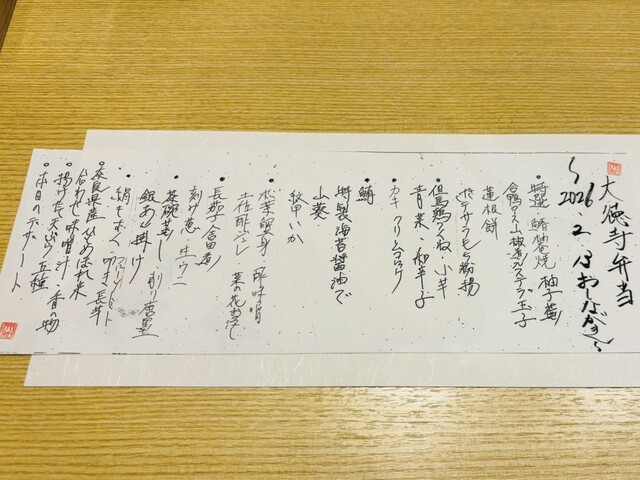 大徳寺弁当
〜2026.2.13 おしながき〜
・特選 鰆柚庵焼 柚子釜
合鴨ロース山椒煮 カステラ玉子
蓮根餅
ポテサラそら豆粉揚
・但馬鶏つくね・小芋
青菜・
・カキクリームコロッケ
・鯛
特製海苔醤油で
山葵
紋甲いか
・水菜 貝身 酢味噌
土佐酢ジュレ 菜の花お浸し
・長茄子含め煮
刻み葱 生ウニ
・茶碗蒸し・
銀あん掛け
・絹もずく 叩き長芋
・奈良県産ひのひかり米
合わせ味噌汁・香の物
・揚げたて天ぷら五種
・本日のデザート